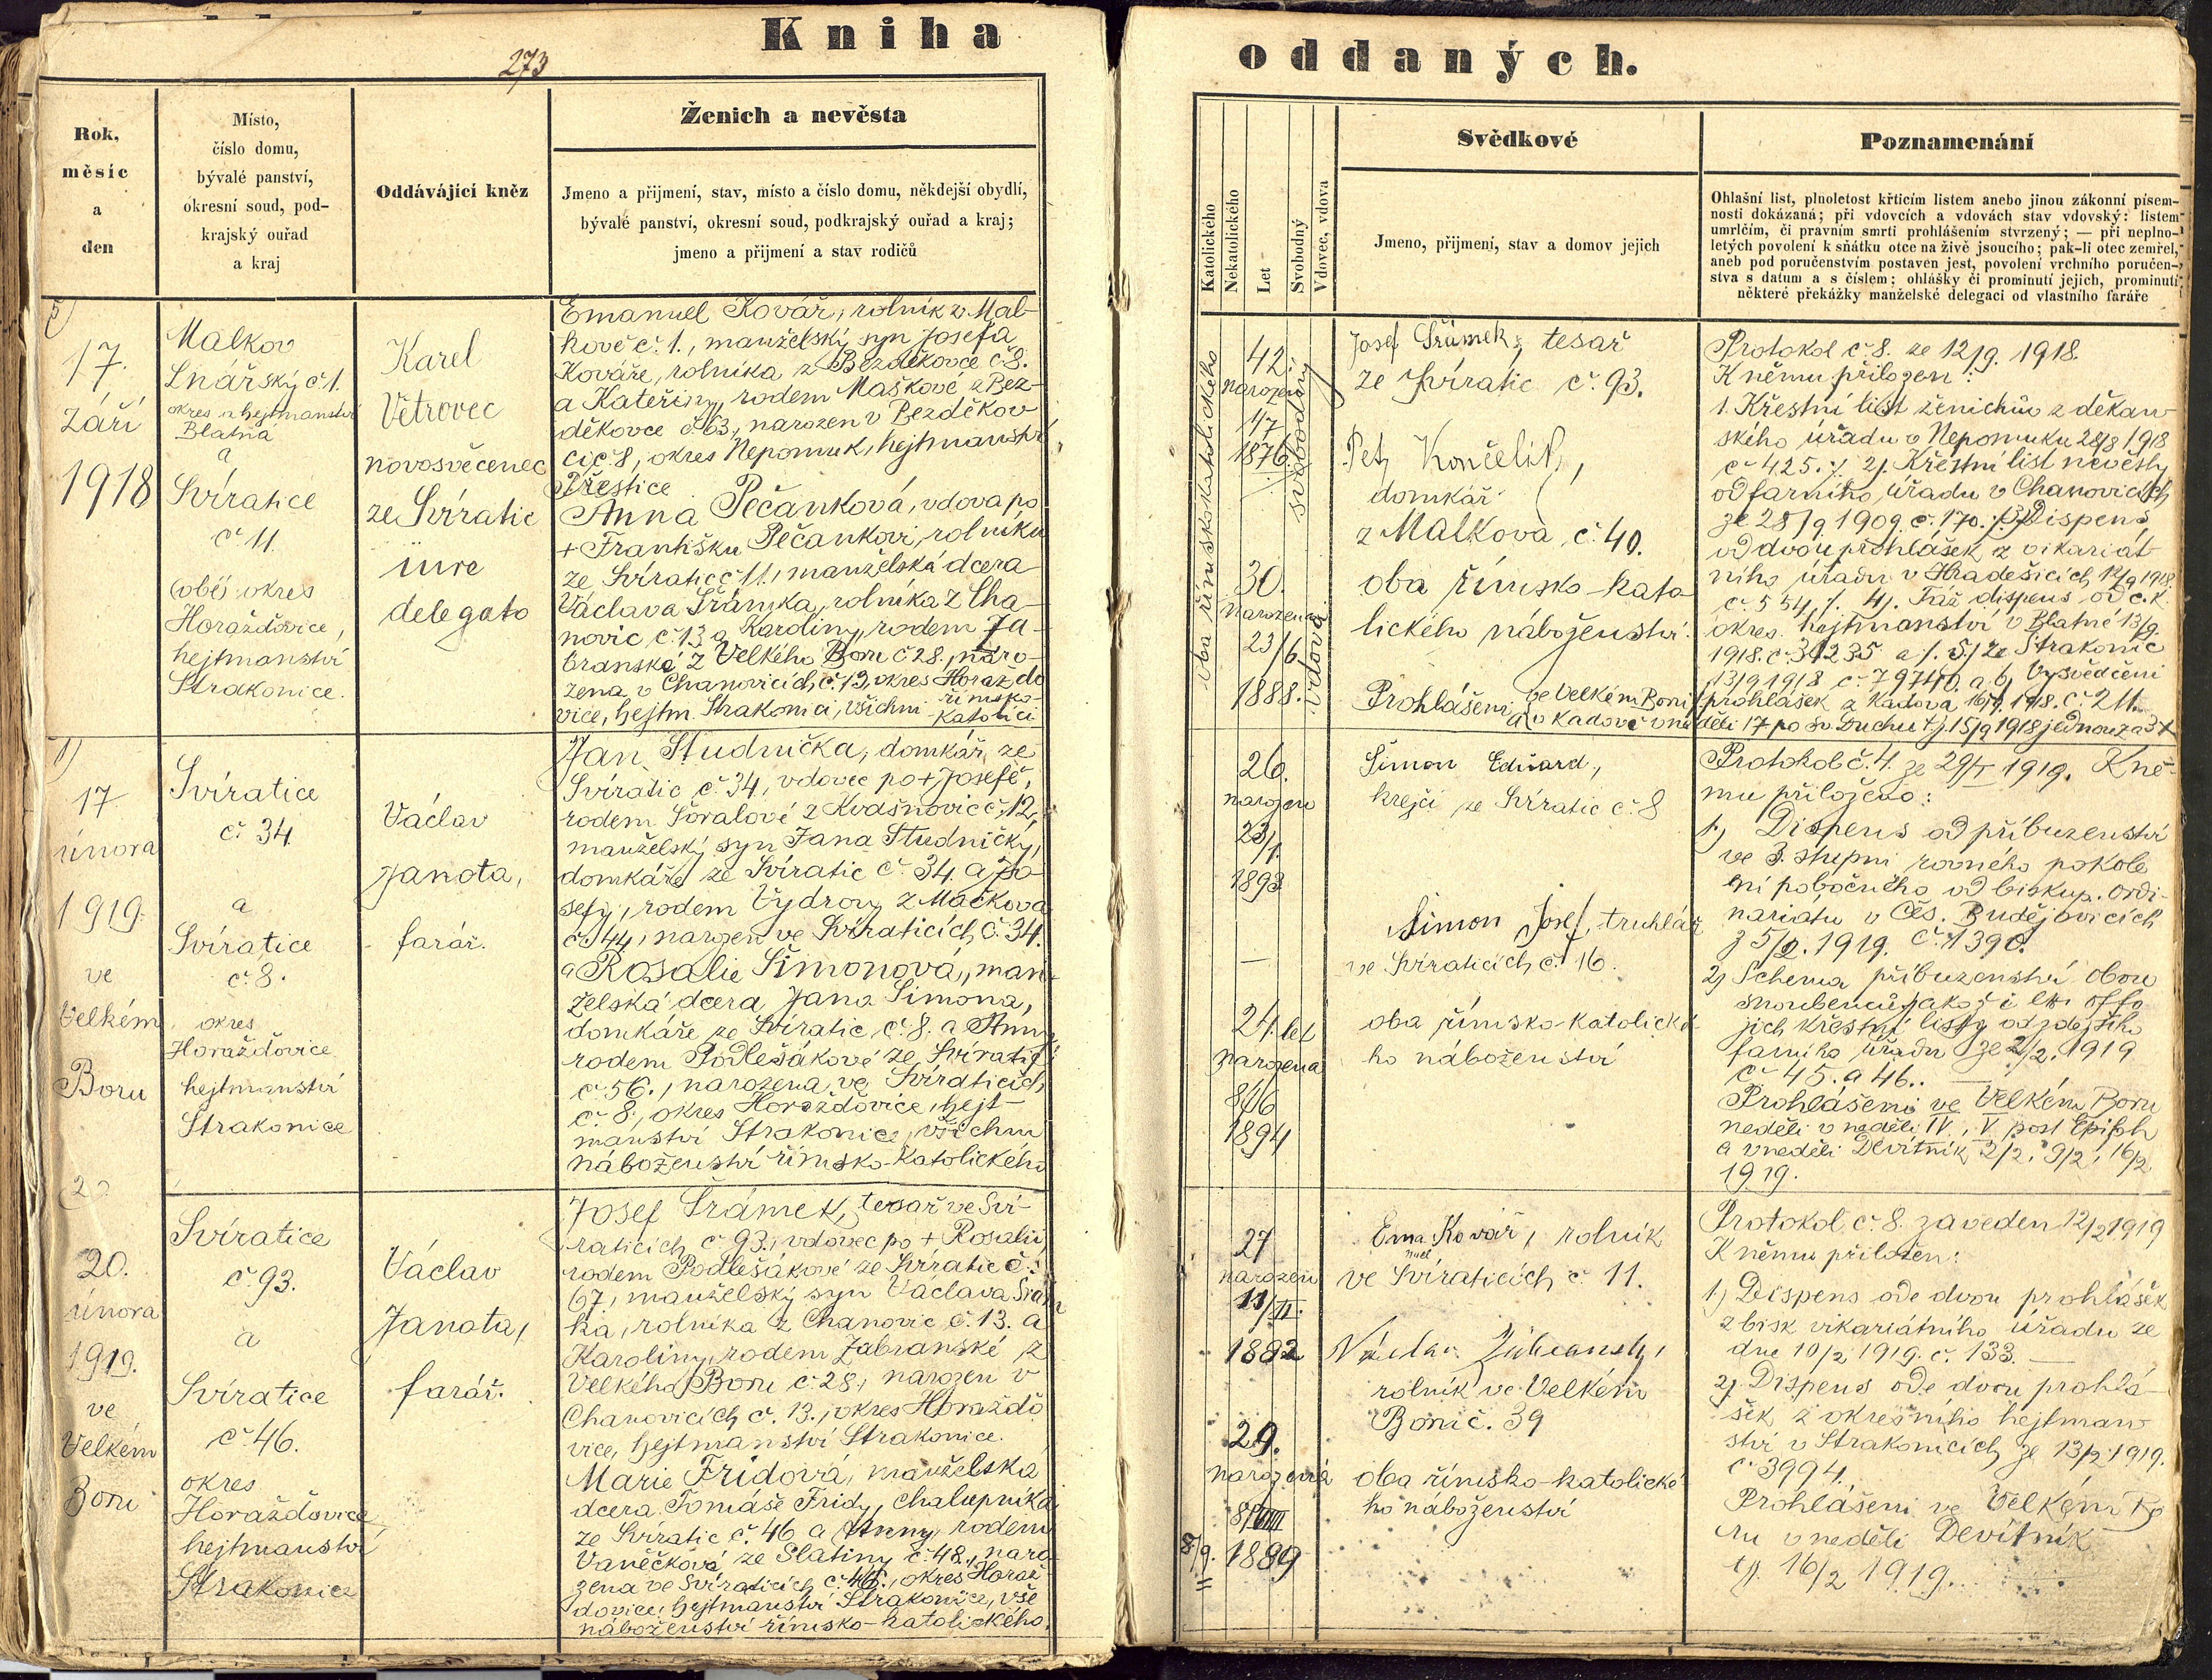 Kniha
273
Rok,
měsíc
a
den
Místo,
číslo domu,
bývalé panství,
okresní soud, pod-
krajský ouřad
a kraj
Oddávající kněz
Ženich a nevěsta
Jmeno a přijmení, stav, místo a číslo domu, někdejší obydlí,
bývalé panství, okresní soud, podkrajský ouřad a kraj;
jmeno a přijmení a stav rodičů
5)
17.
Září
1918
Malkov
Lnářský č 1.
okres a hejtmanství
Blatná
a
Svíratice
č 11.
(obě) okres
Horažďovice,
hejtmanství
Strakonice.
Karel
Větrovec
novosvěcenec
ze Svíratic
iure
delegato
Emanuel Kovář, rolník v Mal-
kově č. 1., manželský syn Josefa
Kováře, rolníka z Bezděkovce č 8.
a Kateřiny, rodem Maškové z Bez-
děkovce č. 63, narozen v Bezděkov
ci č 8, okres Nepomuk, hejtmanství
Přeštice
Anna Pečanková, vdova po
+ Františku Pečankovi, rolníku
ze Svíratic č 11, manželská dcera
Václava Šrámka, rolníka z Cha-
novic č. 13 a Karoliny, rodem Za-
branské z Velkého Boru č 28., naro-
zena v Chanovicích, č. 13, okres Horažďo
vice, hejtm. Strakonici, všichni římsko-
katolíci
1)
17
února
1919.
ve
Velkém
Boru
Svíratice
č 34
a
Svíratice
č. 8.
okres
Horažďovice
hejtmanství
Strakonice
Václav
Janota,
farář.
Jan Studnička, domkář ze
Svíratic č. 34, vdovec po + Josefě,
rodem Šoralové z Kvašnovic č. 12,
manželský syn Jana Studničky,
domkáře ze Svíratic č. 34. a Jo-
sefy, rodem Vydrovy z Mačkova
č. 44, narozen ve Svíraticích, č. 34.
a Rosalie Šimonová, man-
želská dcera Jana Šimona,
domkáře ze Svíratic č. 8. a Anny
rodem Podlešákové ze Svíratic
č. 56., narozena ve Svíraticích
č. 8., okres Horažďovice, hejt-
manství Strakonice, všichni
náboženství římsko-katolického
2)
20.
února
1919.
ve
Velkém
Boru
Svíratice
č. 93.
a
Svíratice
č. 46.
okres
Horažďovice
hejtmanství
Strakonice
Václav
Janota,
farář.
Josef Šrámek, tesař ve Sví-
raticích č. 93., vdovec po + Rosalii,
rodem Podlešákové ze Svíratic č.
67, manželský syn Václava Šrám
ka, rolníka z Chanovic č. 13. a
Karoliny, rodem Zabranské z
Velkého Boru č. 28, narozen v
Chanovicích č. 13., okres Horažďo
vice, hejtmanství Strakonice.
Marie Frídová, manželská
dcera Tomáše Frídy, chalupníka
ze Svíratic č. 46 a Anny, rodem
Vaněčkové ze Slatiny č. 48, naro
zena ve Svíraticích, č. 46., okres Horaž-
dovice, hejtmanství Strakonice, vše
náboženství římsko-katolického.
oddaných.
Katolického
Nekatolického
Let
Svobodný
Vdovec, vdova
Svědkové
Jmeno, přijmení, stav a domov jejich
Poznamenání
Ohlašní list, plnoletost křticím listem anebo jinou zákonní písem-
nosti dokázaná; při vdovcích a vdovách stav vdovský: listem
umrlčím, či pravním smrti prohlášením stvrzený; — při neplno-
letých povolení k sňátku otce na živě jsoucího; pak-li otec zemřel,
aneb pod poručenstvím postaven jest, povolení vrchního poručen-
stva s datum a s číslem; ohlášky či prominutí jejich, prominutí
některé překážky manželské delegaci od vlastního faráře
oba římskokatolického
42
narozen
1876
svobodný
30.
narozena
23/6
1888.
vdova
Josef Šrámek, tesař
ze Svíratic č. 93.
Petr Končelík,
domkář
z Malkova č. 40.
oba římsko-kato-
lického náboženství.
Prohlášeni ve Velkém Boru
a v Kadově v ne
děli 17 po Sv. Duchu t.j. 15/9 1918 jednou za 3x
Protokol č 8. ze 12/9. 1918.
K němu přiložen:
1. Křestní list ženichův z děkan-
ského úřadu v Nepomuku 28/8 1918
č 425. /. 2/. Křestní list nevěsty
od farního úřadu v Chanovicích
ze 28/9 1909. č. 170. /. 3/ Dispens
od dvou prohlášek z vikariát-
ního úřadu v Hradešicích 12/9 1918
č. 554 /. 4/. Táž dispens od c. k.
okres. hejtmanství v Blatné 13/9.
1918. č. 31235 a /. 5/ ze Strakonic
13/9 1918 č 79740. a 6/ Vysvědčení
prohlášek z Kadova 16/9. 1918. č. 211.
26.
narozen
23/1.
1893
—
24 let
narozena
8/16
1894
Šimon Eduard,
krejčí ze Svíratic č. 8
Šimon Josef, truhlář
ve Svíraticích č. 16.
oba římsko-katolické-
ho náboženství
Protokol č. 4. ze 29/I 1919. K ně-
mu přiloženo:
1.) Dispens od příbuzenství
ve 3. stupni rovného pokole
ní pobočného od biskup. ordi-
nariátu v Čes. Budějovicích
z 5/2. 1919. č. 1390.
2) Schema příbuzenství obou
snoubenců jakož i
jich křestní listy od zdejšího
farního úřadu ze 2/2. 1919
č 45. a 46..
Prohlášeni ve Velkém Boru
neděli v neděli IV, V post Epiph
a v neděli Devítník 2/2, 9/2, 16/2
1919.
27
narozen
11/II.
1892
29.
narozená
1889
8/9.
Ema Kovář, rolník
nuel
ve Svíraticích č. 11.
rolník ve Velkém
Boru č. 39
oba římsko-katolické
ho náboženství
Protokol č. 8. zaveden 12/2 1919
K němu přiložen:
1) Dispens ode dvou prohlášek
z bisk vikariátního úřadu ze
dne 10/2 1919. č. 133. —
2) Dispens ode dvou prohlá-
šek z okresního hejtman
ství v Strakonicích, ze 13/2 1919.
č 3994.
Prohlášeni ve Velkém Bo
ru v neděli Devítník
tj. 16/2 1919.